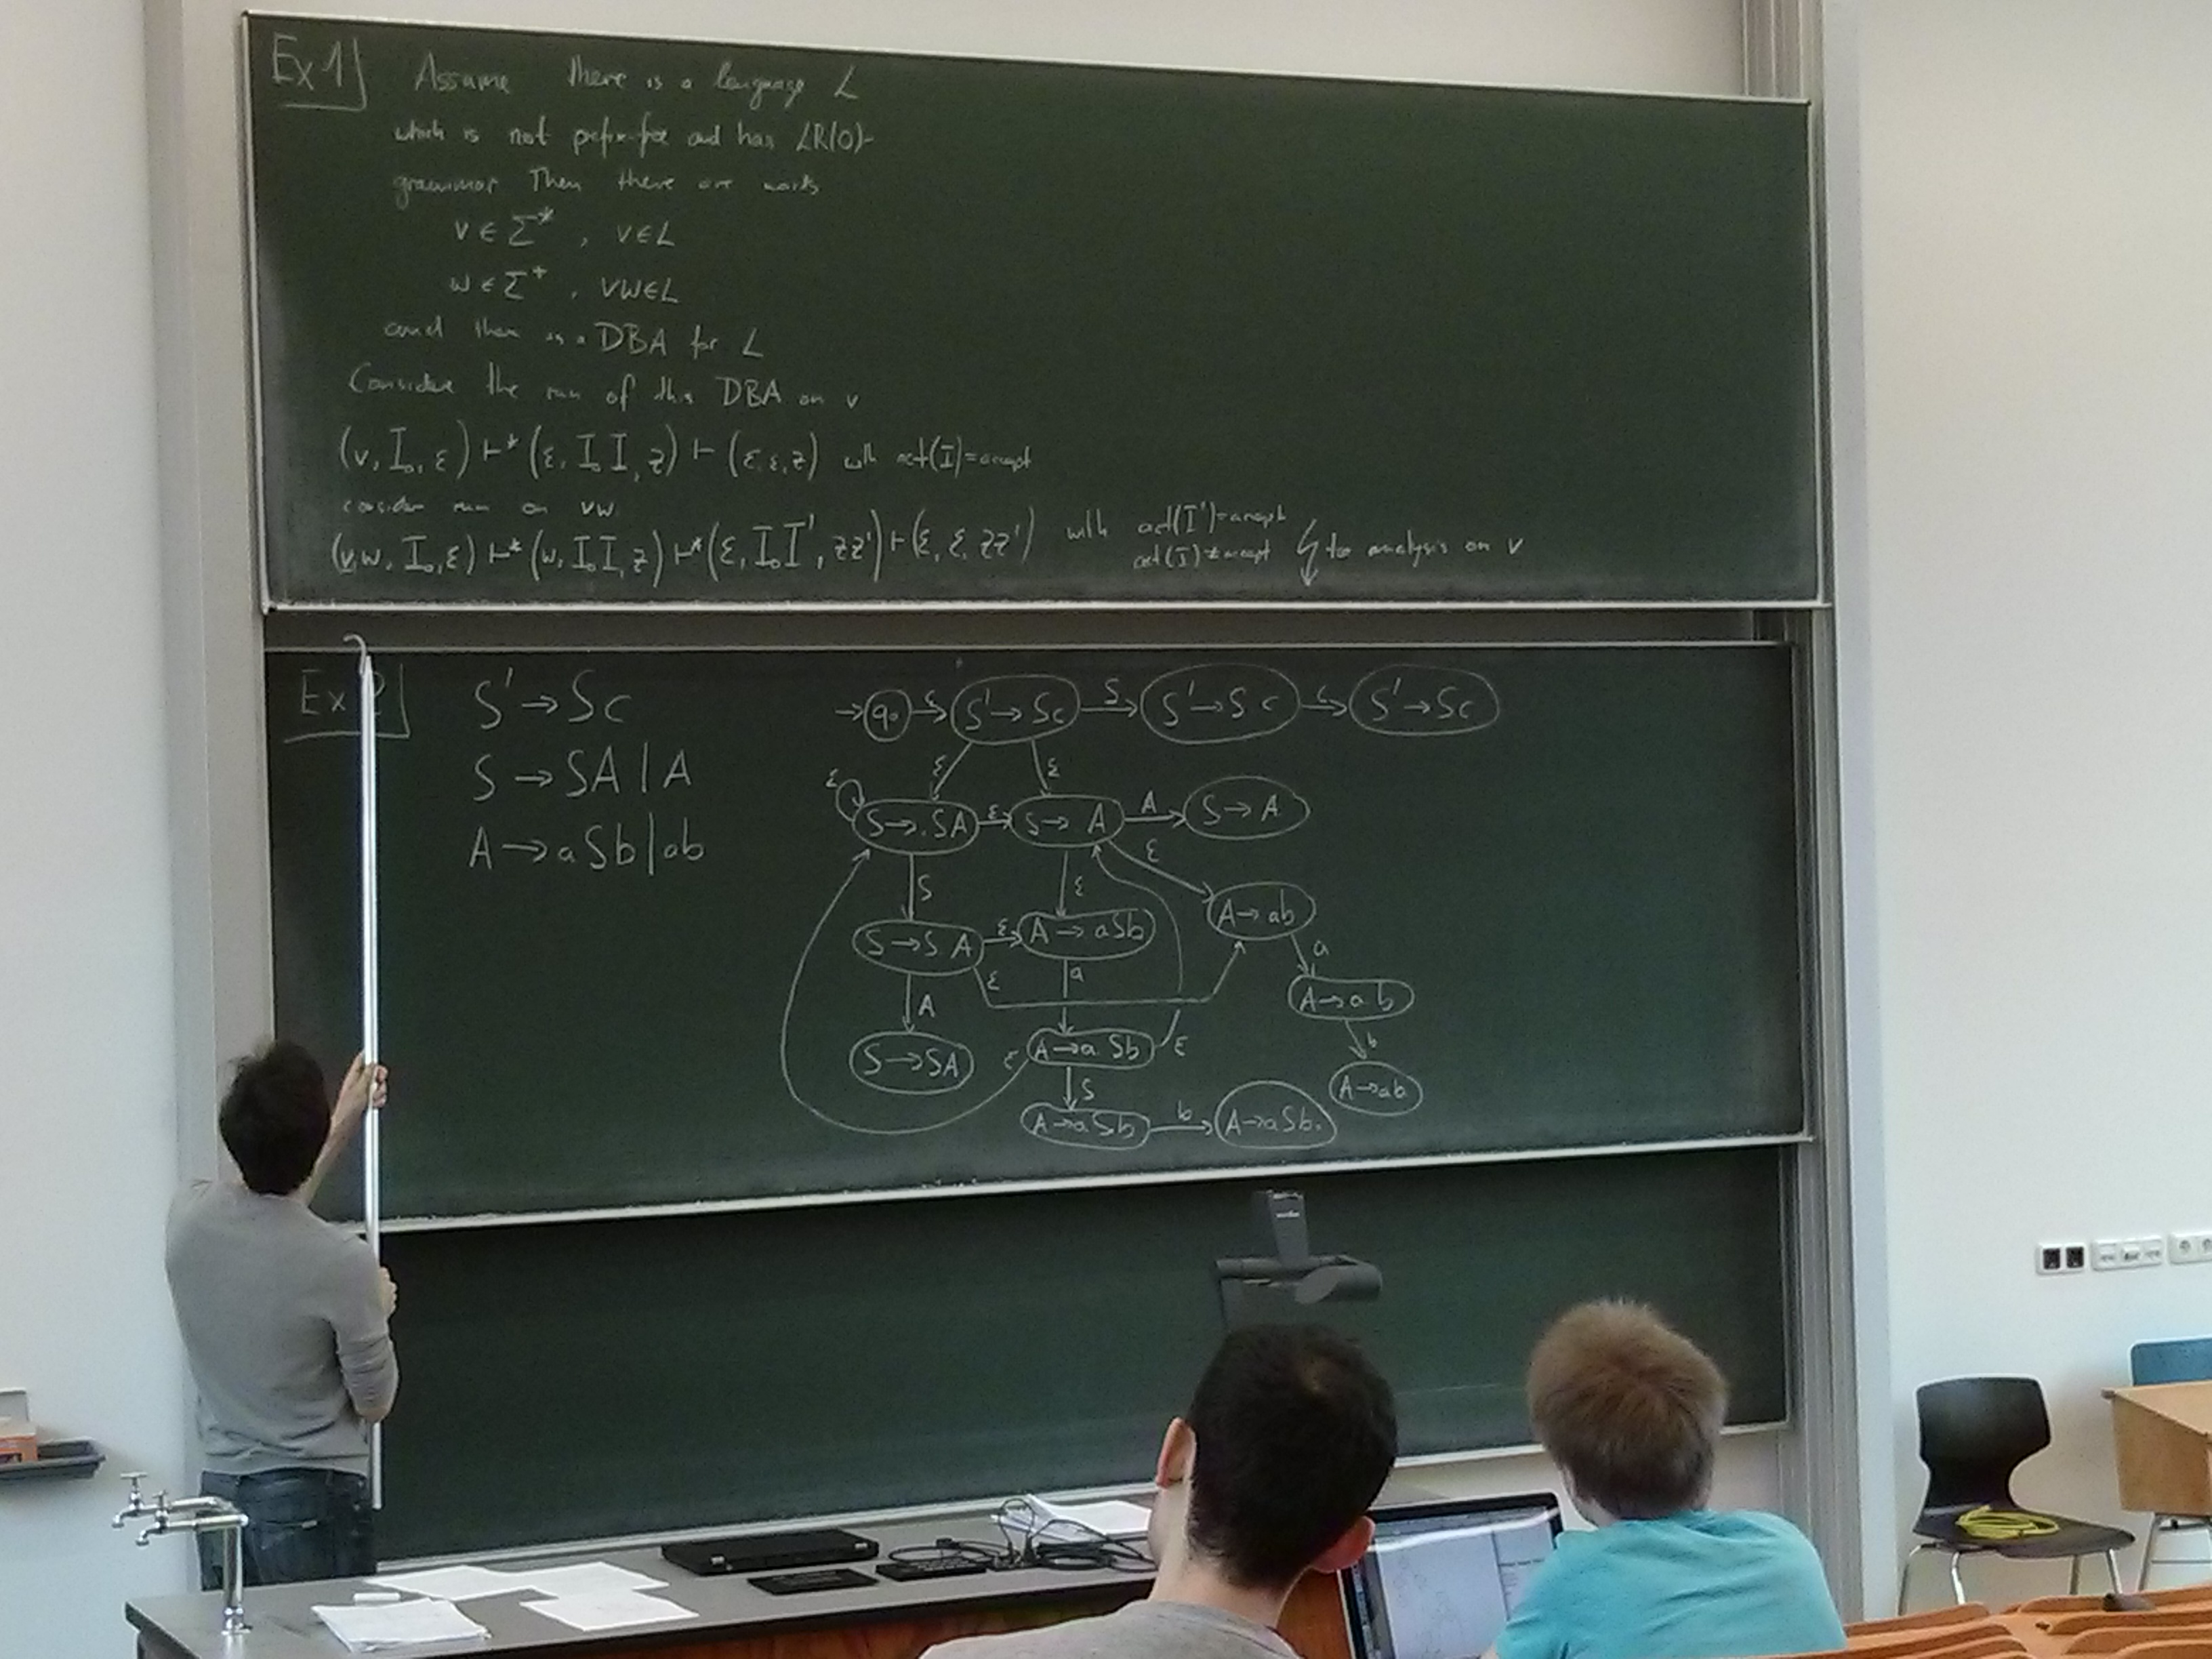 Ex 1] Assume there is a language L
which is not prefix-free and has LR(0)-
grammar Then there are words
v ∈ Σ* , v ∈ L
w ∈ Σ⁺ , vw ∈ L
and there is a DBA for L
Consider the run of this DBA on v
(v, I₀, ε) ⊢* (ε, I₀ I, z) ⊢ (ε, ε, z) with act(I) = accept
consider run on vw
(vw, I₀, ε) ⊢* (w, I₀ I, z) ⊢* (ε, I₀ I', zz') ⊢ (ε, ε, zz') with act(I') = accept
act(I) ≠ accept ↯ to analysis on v
Ex 2] S' → Sc
S → SA | A
A → aSb | ab
→ q₀ ε S' → Sc S S' → S c c S' → Sc
ε ε
ε S → .SA ε S → A A S → A
S ε ε A → ab
S → S A ε A → aSb a
A ε a A → a b
S → SA ε A → a Sb ε b
S A → ab
A → a S b b A → aSb.